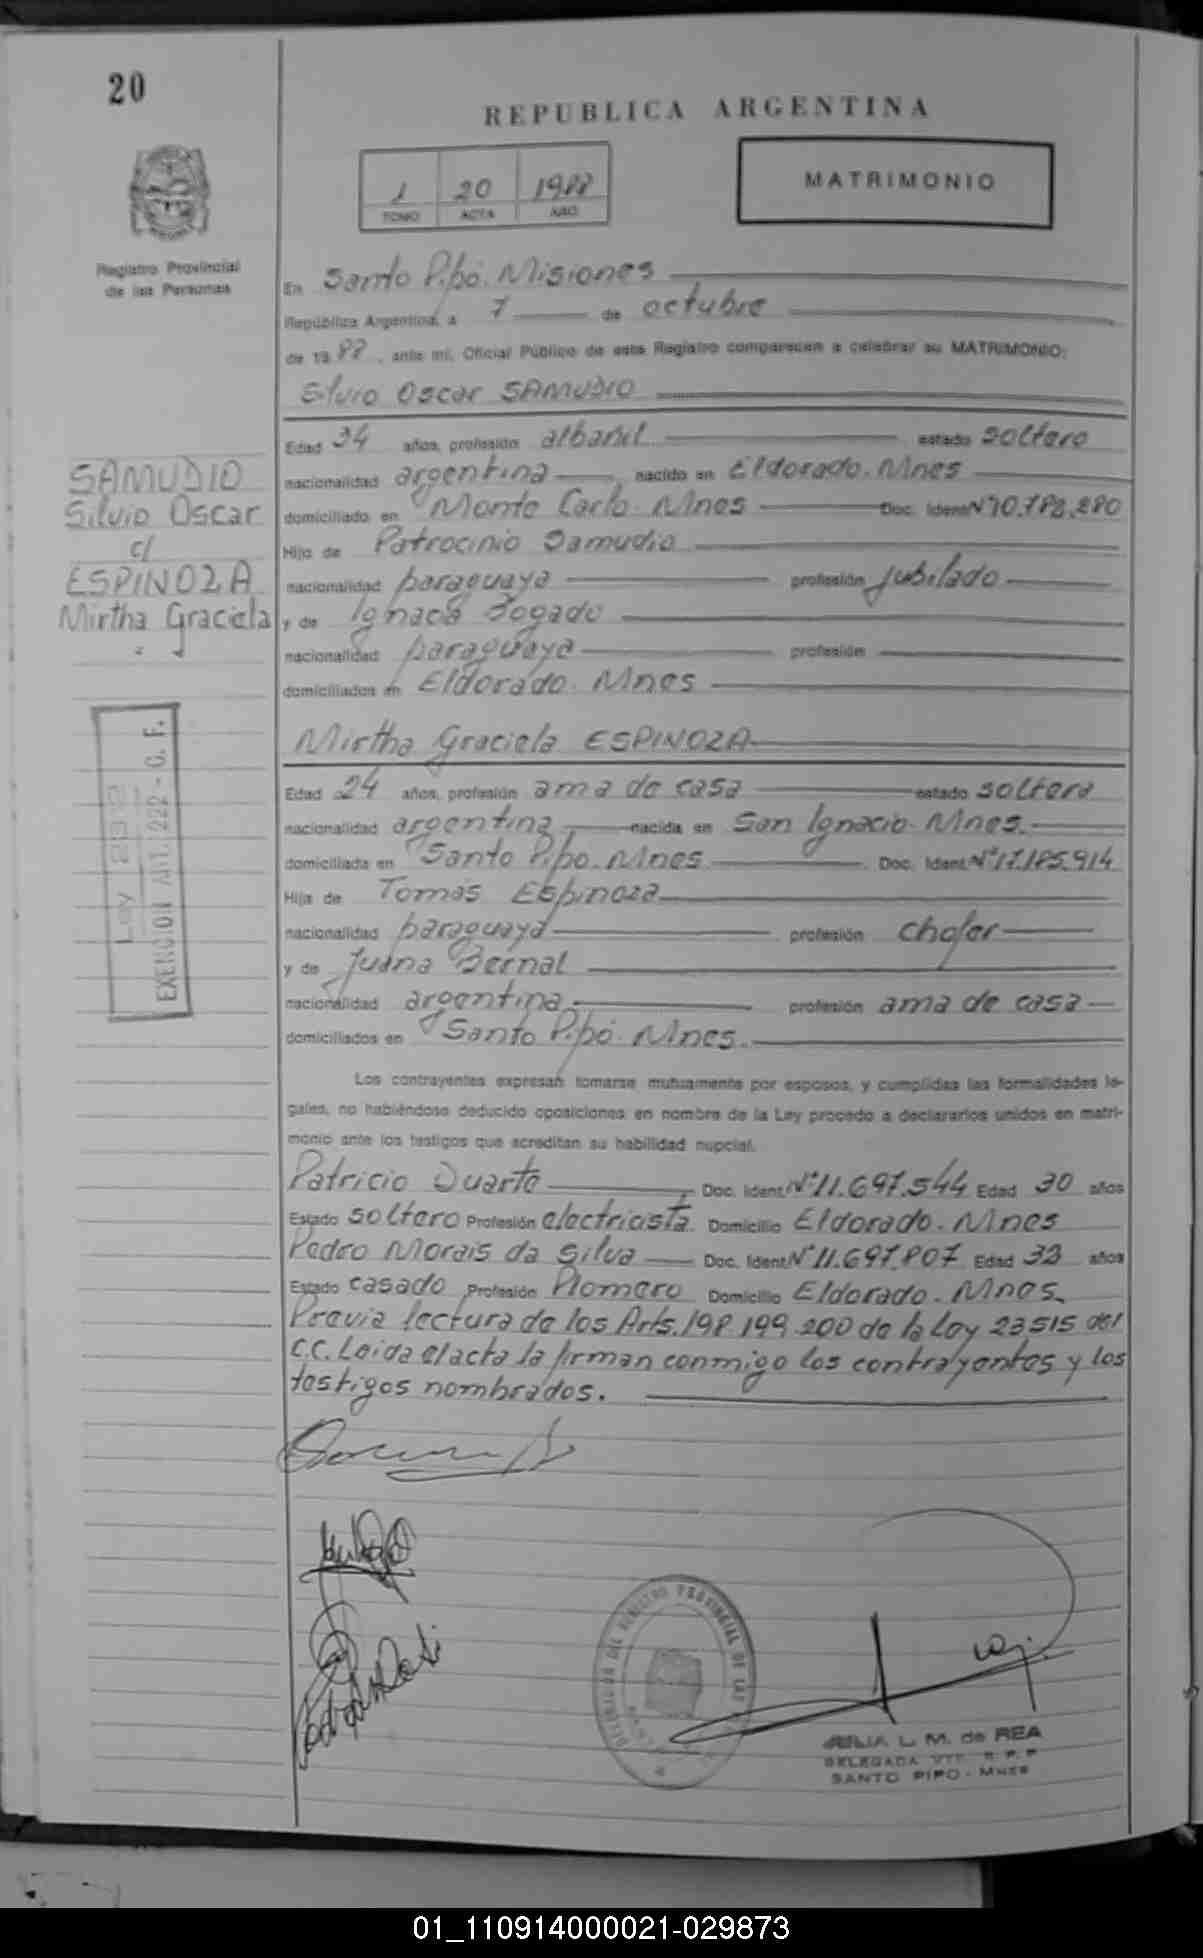 20
REPUBLICA ARGENTINA
MATRIMONIO
1 20 1988
TOMO ACTA AÑO
Registro Provincial
de las Personas
En Santo Pipó. Misiones
República Argentina, a 7 de octubre
de 1988, ante mí, Oficial Público de este Registro comparecen a celebrar su MATRIMONIO:
Silvio Oscar SAMUDIO
Edad 34 años, profesión albañil estado soltero
nacionalidad argentina, nacido en Eldorado. Mnes
domiciliado en Monte Carlo. Mnes Doc. Ident. Nº 10.788.280
Hijo de Patrocinio Samudio
nacionalidad paraguaya profesión jubilado
y de Ignacia Bogado
nacionalidad paraguaya profesión
domiciliados en Eldorado. Mnes
SAMUDIO
Silvio Oscar
c/
ESPINOZA
Mirtha Graciela
Mirtha Graciela ESPINOZA
Edad 24 años, profesión ama de casa estado soltera
nacionalidad argentina, nacida en San Ignacio. Mnes.
domiciliada en Santo Pipó. Mnes. Doc. Ident. Nº 17.185.914
Hija de Tomás Espinoza
nacionalidad paraguaya profesión chofer
y de Juana Bernal
nacionalidad argentina profesión ama de casa
domiciliados en Santo Pipó. Mnes.
Ley
EXENCION Art. 222 - C. F.
Los contrayentes expresan tomarse mutuamente por esposos, y cumplidas las formalidades le-
gales, no habiéndose deducido oposiciones en nombre de la Ley procedo a declararlos unidos en matri-
monio ante los testigos que acreditan su habilidad nupcial.
Patricio Duarte Doc. Ident. Nº 11.697.544 Edad 30 años
Estado soltero Profesión electricista. Domicilio Eldorado. Mnes
Pedro Morais da Silva Doc. Ident. Nº 11.697.807 Edad 33 años
Estado casado Profesión Plomero Domicilio Eldorado. Mnes.
Previa lectura de los Arts. 198 199 200 de la Ley 23515 del
C.C. Leida el acta la firman conmigo los contrayentes y los
testigos nombrados.
L. M. de REA
DELEGADA
SANTO PIPO - MNES
01_110914000021-029873